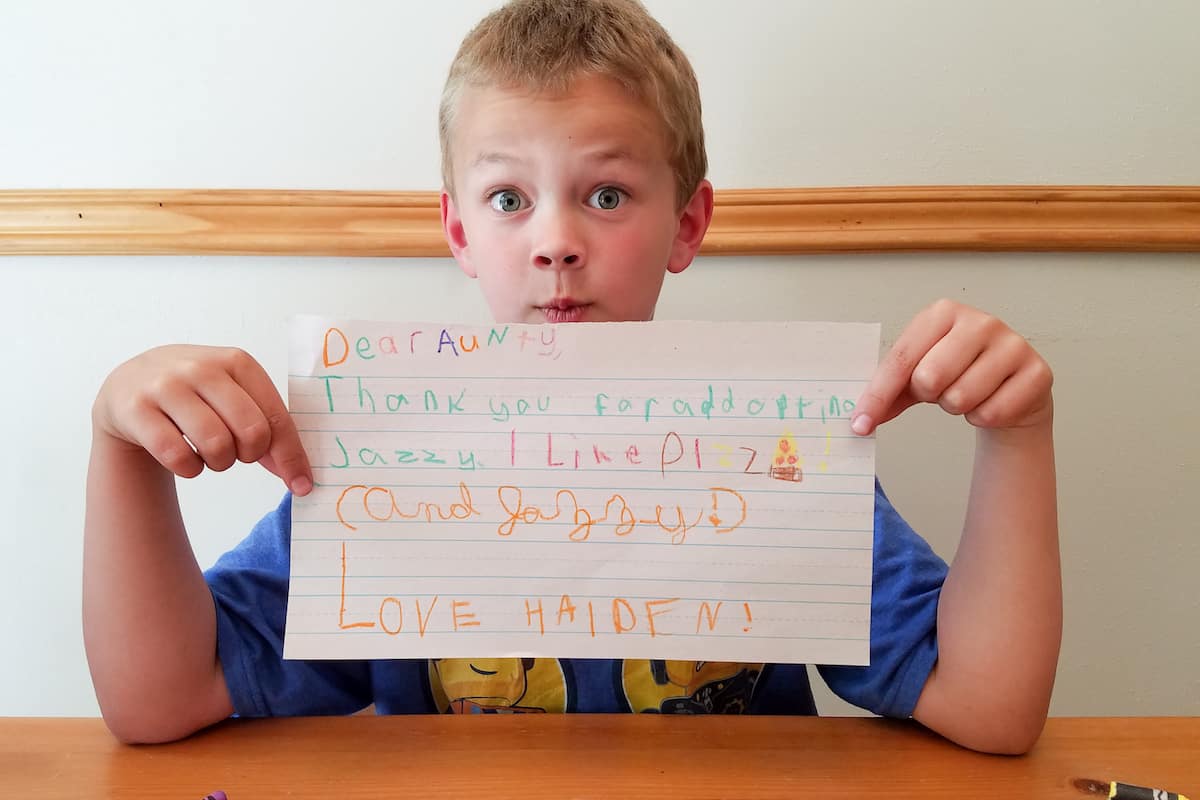 Dear AuNty,
Thank you for addopting
Jazzy. I Like PIzz🍕!
(and Jazzy!)
LOVE HAIDEN!